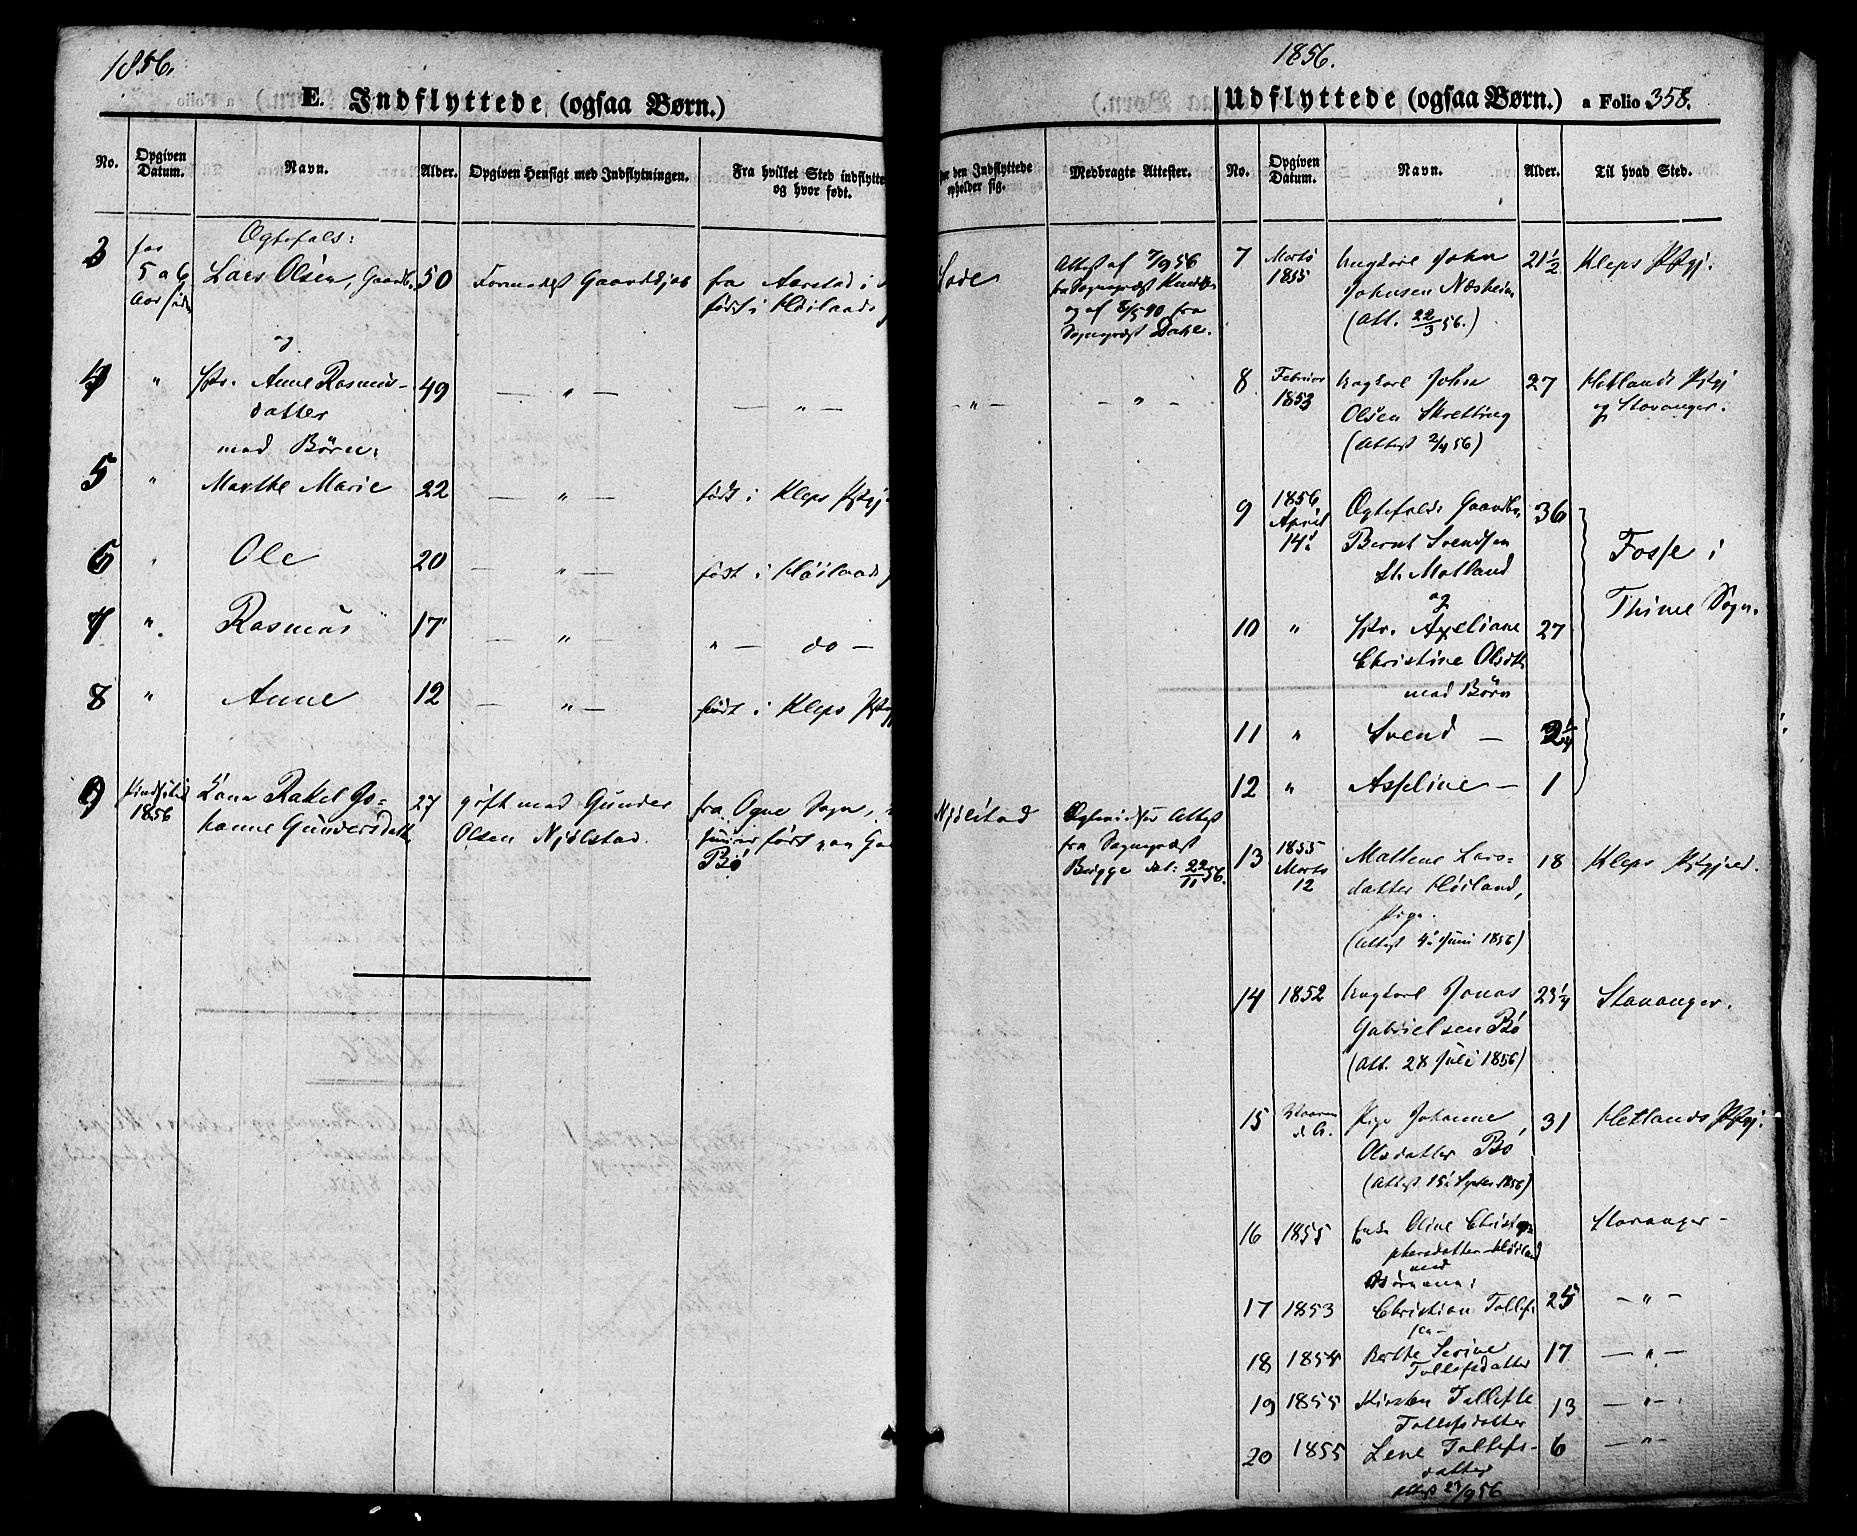 1856.
E. Indflyttede (ogsaa Børn.)
No.
Opgiven Datum.
Navn.
Alder.
Opgiven Hensigt med Indflytningen.
Fra hvilket Sted indflytte
og hvor født.
3
for
5 a 6
Aar siden
Ægtefolk:
Lars Olsen, Gaardbr.
50
fra Aarstad i
født i Høilands
og
4 " Hstr. Anne Rasmus-
datter
49 — " — — " —
med Børn:
5 " Marthe Marie 22 — " — født i Kleps Pstgj
6 " Ole 20 — " — født i Høilands
7 " Rasmus 17 — " — " — do —
8 " Anne 12 — " — født i Kleps Pstgj
9
1856
Kone Rakel Jo=
hanne Gundersdatter
27
gift med Gunder
Olsen Njølstad.
fra Ogne Sogn,
født paa
Bø
1856.
Udflyttede (ogsaa Børn.) a Folio 358.
hvor den Indflyttede
opholder sig.
Medbragte Attester.
No.
Opgiven Datum.
Navn.
Alder.
Til hvad Sted.
Attest af 7/9 56
fra Sogneprest
og af 8/5 40 fra
Sogneprest Dahl.
— " — — " —
Njølstad
Attest
fra Sogneprest
Bugge dat: 22/11 56.
7 Marts
1855
Ungkarl John
Johnsen Næsheim
(Att. 22/3 56.)
21½ Kleps Pstgj.
8 Februar
1853
Ungkarl John
Olsen Skretting
(Attest 2/4 56)
27 Hetlands Pstgj
og Stavanger.
9 1856
April
14de
Ægtefolk: Gaardbr.
Bernt Svendsen
St. Motland
36
og
Fosse i
Thime Sogn.
10 " Hstr. Axeliane
Christine Olsdtr
27
med Børn
11 " Svend — 2¼
12 " Asseline — 1
13 1855
Marts
12
Maltene Lars=
datter Høiland,
Pige.
(Attest 4de Juni 1856)
18 Kleps Pstgjæld.
14 1852 Ungkarl Jonas
Gabrielsen Bø
(Att. 28 Juli 1856)
23¼ Stavanger.
15 Vaaren
d. A.
Pige Johanne
Olsdatter Bø
(Attest 15de Septbr 1856)
31 Hetlands Pstgj.
16 1855 Enke Oline Christo
phersdatter Høiland
med
Børnene:
Stavanger —
17 1853 Christian Tollef-
sen —
25 — " —
18 1854 Berthe Serine
Tollefsdatter
17 — " —
19 1855 Kirsten Tollefte
Tollefsdatter
13 — " —
20 1855 Lene Tollefs-
datter
6 — " —